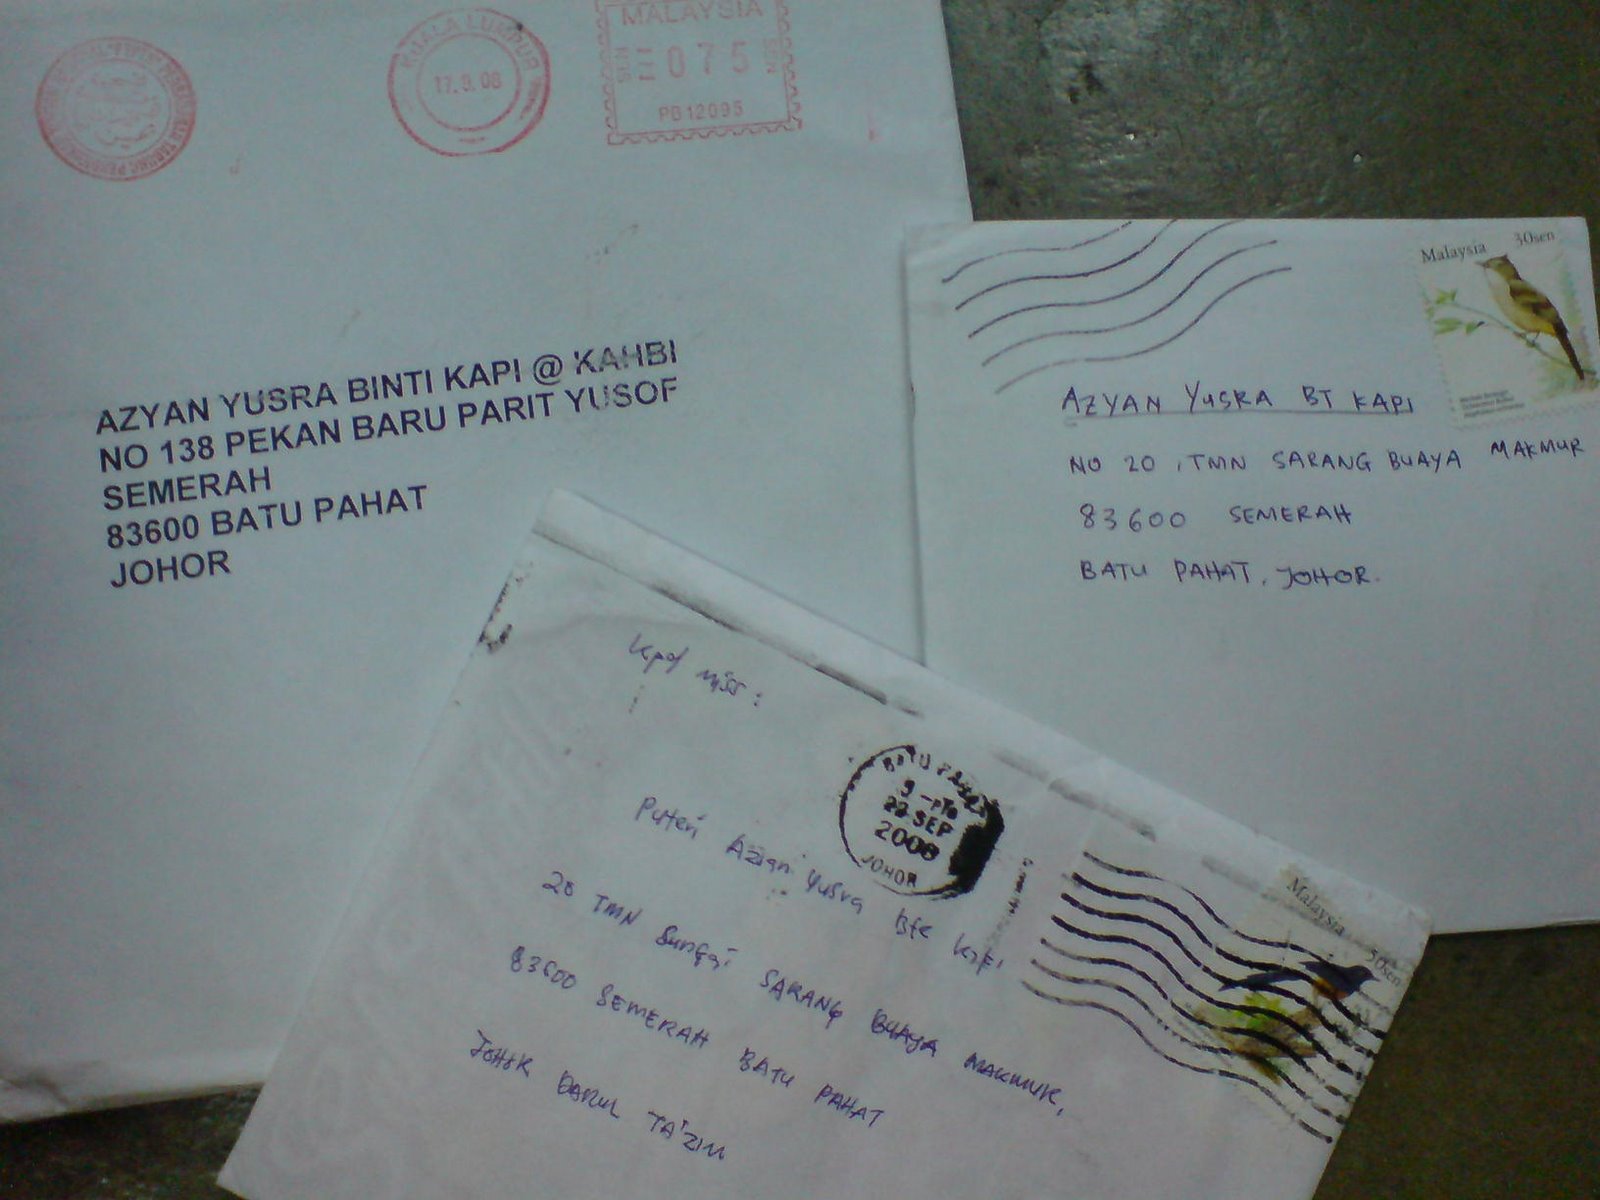 KUALA LUMPUR
17.9.08
MALAYSIA
SEN 075 SEN
PB12095
AZYAN YUSRA BINTI KAPI @ KAHBI
NO 138 PEKAN BARU PARIT YUSOF
SEMERAH
83600 BATU PAHAT
JOHOR
Malaysia 30sen
AZYAN YUSRA BT KAPI
NO 20, TMN SARANG BUAYA MAKMUR
83600 SEMERAH
BATU PAHAT, JOHOR.
Kpd Miss :
BATU PAHAT
22 SEP
2008
JOHOR
Malaysia 50sen
Puteri Azian Yusra bte
20 TMN Sungai SARANG BUAYA MAKMUR,
83600 SEMERAH BATU PAHAT
JOHOR DARUL TA'ZIM